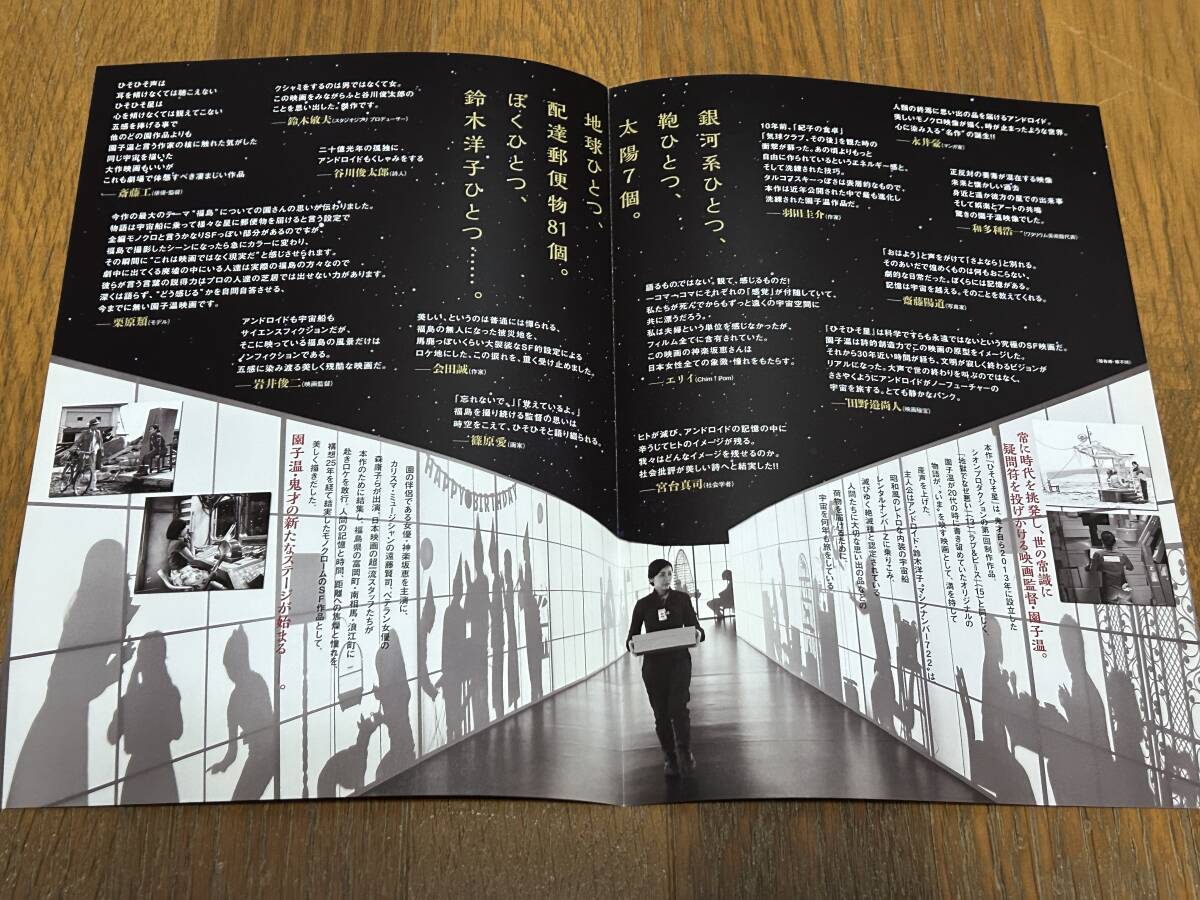 銀河系ひとつ、
太陽7個。
鞄ひとつ、
地球ひとつ、
配達郵便物81個。
ぼくひとつ、
鈴木洋子ひとつ……。
ひそひそ声は
耳を傾けなくては聴こえない
ひそひそ星は
心を傾けなくては観えてこない
五感を捧げる事で
他のどの園作品よりも
園子温と言う作家の核に触れた気がした
同じ宇宙を描いた
大作映画もいいが
これも劇場で体感すべき凄まじい作品
―斎藤工(俳優・監督)
クシャミをするのは男ではなくて女。
この映画をみながらふと谷川俊太郎の
ことを思い出した。傑作です。
―鈴木敏夫(スタジオジブリ プロデューサー)
二十億光年の孤独に
アンドロイドもくしゃみをする
―谷川俊太郎(詩人)
今作の最大のテーマ“福島”についての園さんの思いが伝わりました。
物語は宇宙船に乗って様々な星に郵便物を届けると言う設定で
全編モノクロと言うかなりSFっぽい部分があるのですが、
福島で撮影したシーンになったら急にカラーに変わり、
その瞬間に“これは映画ではなく現実だ”と感じさせられます。
劇中に出てくる廃墟の中にいる人達は実際の福島の方々なので
彼らが言う言葉の説得力はプロの人達の芝居では出せない力があります。
深くは語らず、“どう感じる”かを自問自答させる、
今までに無い園子温映画です。
―栗原類(モデル)
アンドロイドも宇宙船も
サイエンスフィクションだが、
そこに映っている福島の風景だけは
ノンフィクションである。
五感に染み渡る美しく残酷な映画だ。
―岩井俊二(映画監督)
美しい、というのは普通には憚られる、
福島の無人になった被災地を、
馬鹿っぽいくらい大袈裟なSF的設定による
ロケ地にした、この捩れを、重く受け止めました。
―会田誠(作家)
「忘れないで。」「覚えているよ。」
福島を撮り続ける監督の思いは
時空をこえて、ひそひそと語り綴られる。
―篠原愛(画家)
10年前、「紀子の食卓」
「気球クラブ、その後」を観た時の
衝撃が蘇った。あの頃よりもっと
自由に作られているというエネルギー感と、
そして洗練された技巧。
タルコフスキーっぽさは表層的なもので、
本作は近年公開された中で最も進化し
洗練された園子温作品だ。
―羽田圭介(作家)
人類の終焉に思い出の品を届けるアンドロイド。
美しいモノクロ映像が描く、時が止まったような世界。
心に染み入る“名作”の誕生!!
―永井豪(マンガ家)
正反対の要素が混在する映像
未来と懐かしい過去
身近と遥か彼方の星での出来事
そして娯楽とアートの共鳴
驚きの園子温映像でした。
―和多利浩一(ワタリウム美術館代表)
「おはよう」と声をかけて「さよなら」と別れる。
そのあいだで煌めくものは何もおこらない、
劇的な日常だった。ぼくらには記憶がある。
記憶は宇宙を越える。そのことを教えてくれる。
―齋藤陽道(写真家)
語るものではない。観て、感じるものだ!
一コマ一コマにそれぞれの「感覚」が付随していて、
私たちが死んでからもずっと遠くの宇宙空間に
共に漂うだろう。
私は夫婦という単位を感じなかったが、
フィルム全てに含有されていた。
この映画の神楽坂恵さんは
日本女性全ての象徴・憧れをもたらす。
―エリイ(Chim↑Pom)
「ひそひそ星」は科学ですらも永遠ではないという究極のSF映画だ。
園子温は詩的創造力でこの映画の原型をイメージした。
それから30年近い時間が経ち、文明が寂しく終わるビジョンが
リアルになった。大声で世の終わりを叫ぶのではなく、
ささやくようにアンドロイドがノーフューチャーの
宇宙を旅する。とても静かなパンク。
―田野邉尚人(映画秘宝)
(順告順・順不同)
ヒトが滅び、アンドロイドの記憶の中に
辛うじてヒトのイメージが残る。
我々はどんなイメージを残せるのか。
社会批評が美しい詩へと結実した!!
―宮台真司(社会学者)
常に時代を挑発し、世の常識に
疑問符を投げかける映画監督・園子温。
本作『ひそひそ星』は、鬼才自ら2013年に設立した
シオンプロダクションの第一回制作作品。
『地獄でなぜ悪い』(13)『ラブ&ピース』(15)と同じく、
園子温が20代の時に書き留めていたオリジナルの
物語が、“いま”を映す映画として、満を持して
産声を上げた。
主人公はアンドロイド・鈴木洋子“マシンナンバー722”は
昭和風のレトロな内装の宇宙船
レンタルナンバーZに乗りこみ、
滅びゆく絶滅種と認定されている
人間たちに大切な思い出の品などの
荷物を届けるために、
宇宙を何年も旅をしている
園の伴侶である女優・神楽坂恵を主演に、
カリスマ・ミュージシャンの遠藤賢司、ベテラン女優の
森康子らが出演、日本映画の超一流スタッフたちが
本作のために結集し、福島県の富岡町・南相馬・浪江町に
赴きロケを敢行。人間の記憶と時間、距離への焦燥と憧れを、
構想25年を経て結実したモノクロームのSF作品として、
美しく描きだした。
園子温・鬼才の新たなステージが始まる。
HAPPY BIRTHDAY